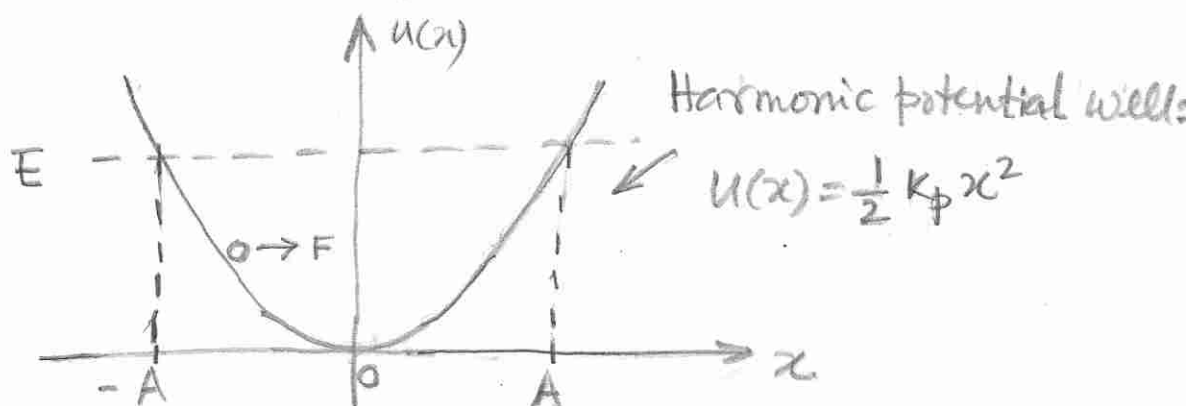 u(x)
Harmonic potential well:
E
u(x) = 1/2 Kp x²
→ F
-A
0
A
x